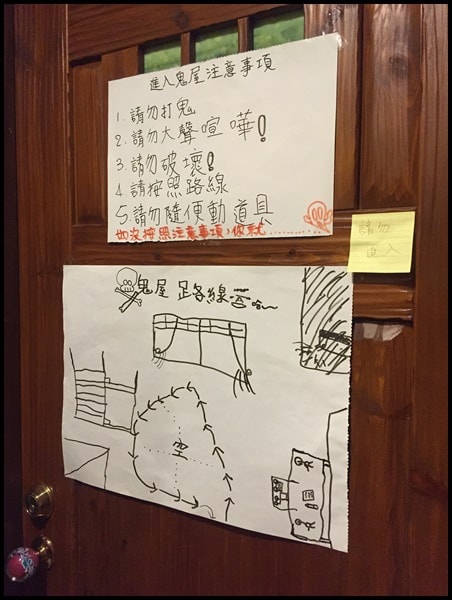 進入鬼屋注意事項
1. 請勿打鬼
2. 請勿大聲喧嘩!
3. 請勿破壞!
4. 請按照路線
5. 請勿隨便動道具
如沒按照注意事項,你就..........
請勿
進入
鬼屋 路線
空